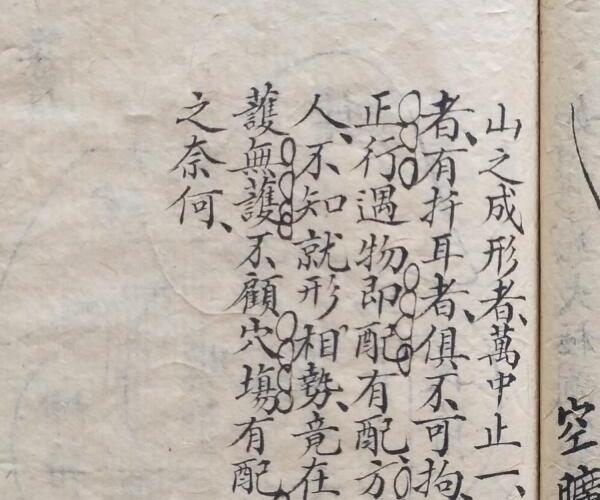 山之成形者、萬中止一、
者、有扦耳者、俱不可拘、
正行遇物即配有配、方
人、不知就形相勢、竟在
護無護、不顧穴塲有配
之奈何、
空曠